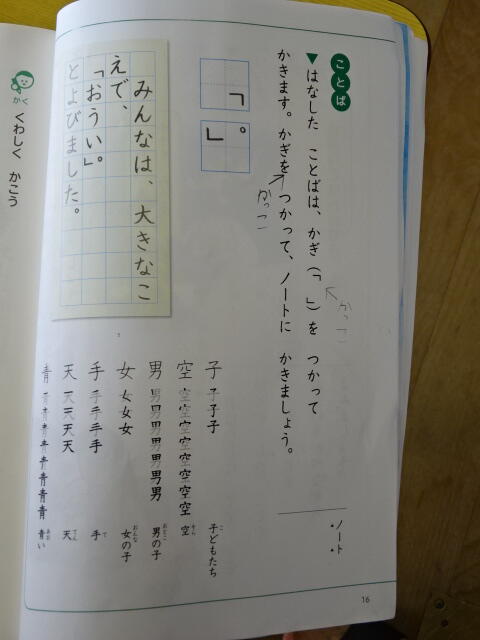 ことば
▼はなした ことばは、かぎ(「 」)を つかって
かっこ
かきます。かぎを つかって、ノートに かきましょう。
かっこ
・ノート・
「
。」
みんなは、大きなこ
えで、
「おうい」。
とよびました。
子 子 子 子 子どもたち
こ
空 空 空 空 空 空 空 空 空 空
そら
男 男 男 男 男 男 男 男 男の子
おとこ
女 女 女 女 女の子
おんな
手 手 手 手 手 手
て
天 天 天 天 天 天
てん
青 青 青 青 青 青 青 青 青 青い
あお
16
かく
くわしく かこう